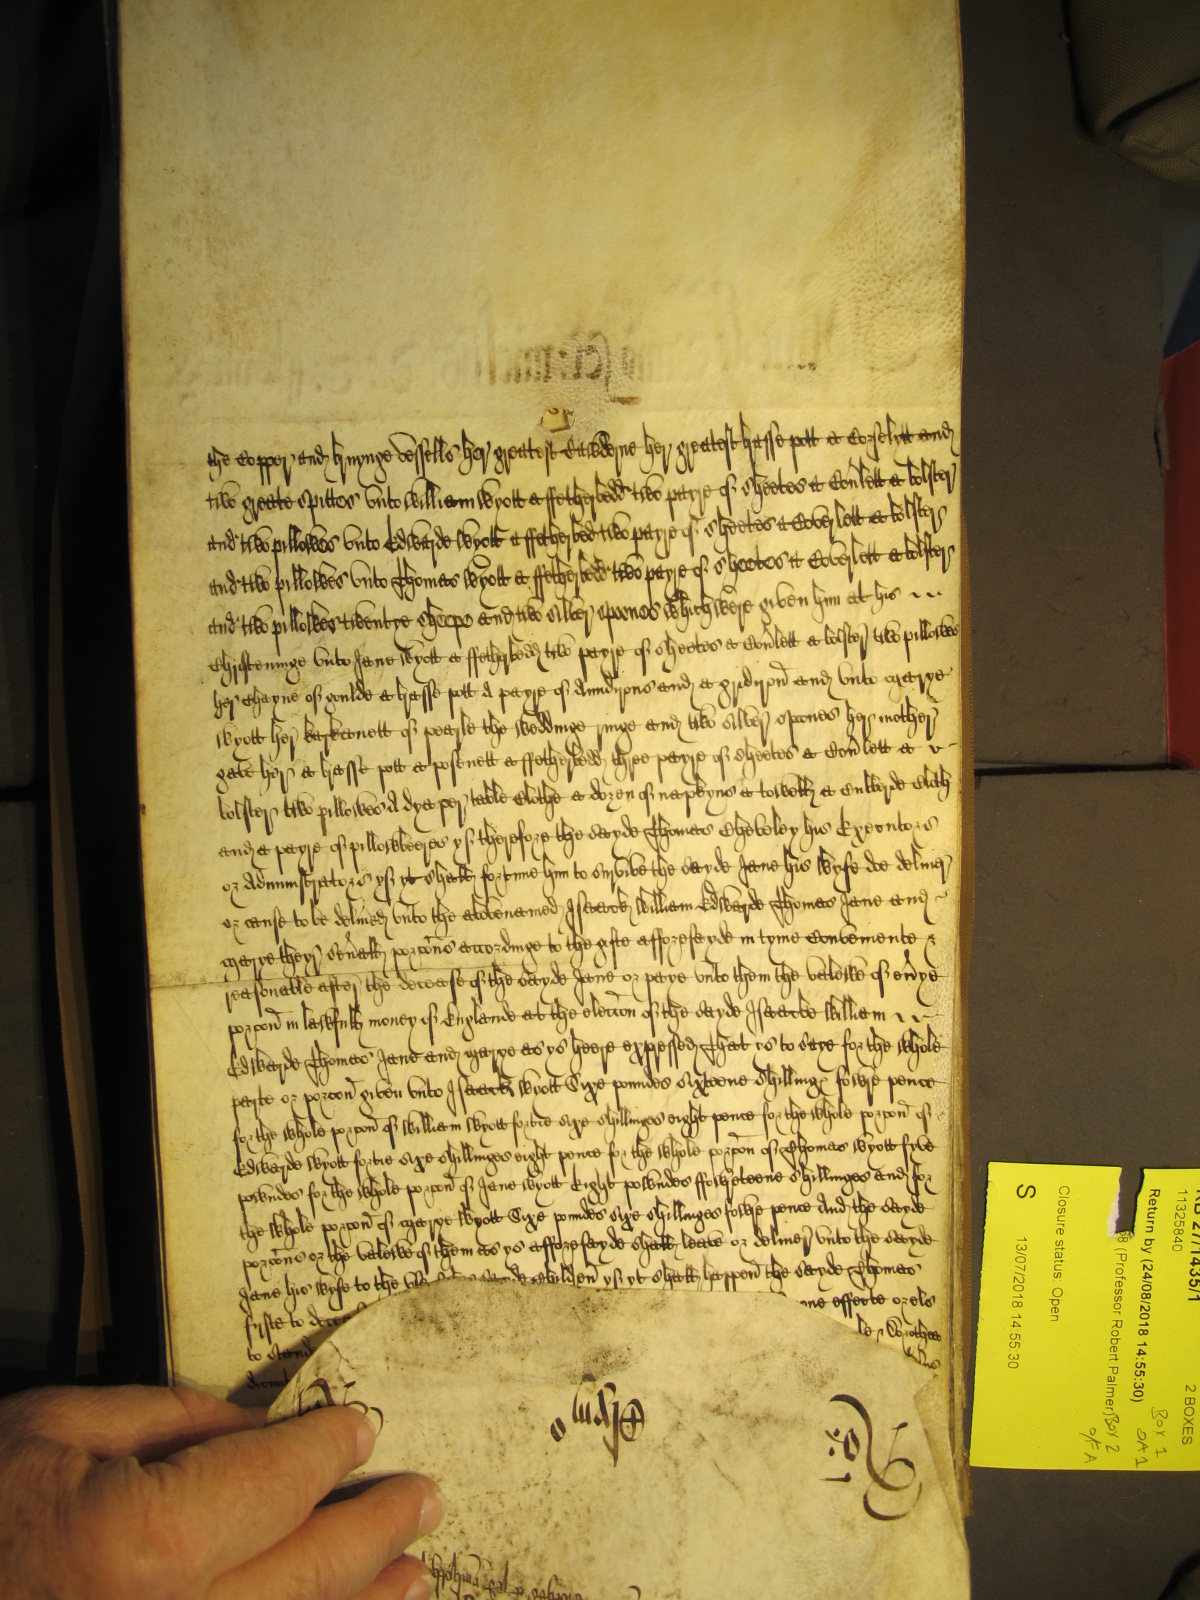 the Copper and bruynge vessells her greatest Cawderne her greatest brasse pott a Corslett and
two greate spittes unto William Wyott a ffetherbedd two payre of sheetes a Cov'lett a bolster
and two pillowes unto Edwarde Wyott a ffetherbed two payre of sheetes a Coverlett a bolster
and two pillowes unto Thomas Wyott a ffetherbedd two payre of sheetes a Coverlett a bolster
and two pillowes twentye sheepe and two silver spones which were given him at his
Christeninge unto Jane Wyott a ffetherbedd two payre of sheetes a Cov'lett a bolster two pillowes
her chayne of goulde a brasse pott A payre of Aundirons and a gridiron and unto Marye
Wyott her karkanett of pearle the weddinge ringe and two silver spones her mother
gave her a brasse pott a posnett a ffetherbedd three payre of sheetes a Cov'lett a
bolster two pillowes A dyeaper table Clothe a dozen of napkyns a towell a Cubberde Cloth
and a payre of pillowbeeres yf therefore the sayde Thomas Cheveley his Executors
or Administrators yf yt shall fortune him to survive the sayde Jane his wyfe doe deliver
or cause to be deliv'ed unto the abovenamed Isaack William Edwarde Thomas Jane and
Marye theyr sev'all porc'ons accordinge to the gifte afforesayde in tyme Conveniente &
reasonable after the decease of the sayde Jane or paye unto them the valewe of ev'ye
porc'on in lawfull money of Englande at the elecc'on of the sayde Isaacke William
Edwarde Thomas Jane and Marye as ys heere expressed That ys to saye for the whole
parte or porc'on given unto Isaack Wyott Sixe poundes sixteene shillinges fowre pence
for the whole porc'on of William Wyott fortie sixe shillinges eight pence for the whole porc'on of
Edwarde Wyott fortie sixe shillinges eight pence for the whole porc'on of Thomas Wyott fyve
powndes for the whole porc'on of Jane Wyott Eight powndes ffowreteene shillinges and for
the whole porc'on of Marye Wyott Sixe poundes sixe shillinges fowre pence And the sayde
porc'ons or the valewe of them as ys afforesayde shall leave or deliver unto the sayde
Jane his wyfe to the children yf yt shall happen the sayde Thomas
firste to effecte or els
to stand
S
13/07/2018 14:55:30
Closure status: Open
(Professor Robert Palmer) Box 2
Return by (24/08/2018 14:55:30)
Box 1
11325840
2 BOXES
KB 27/1435/1